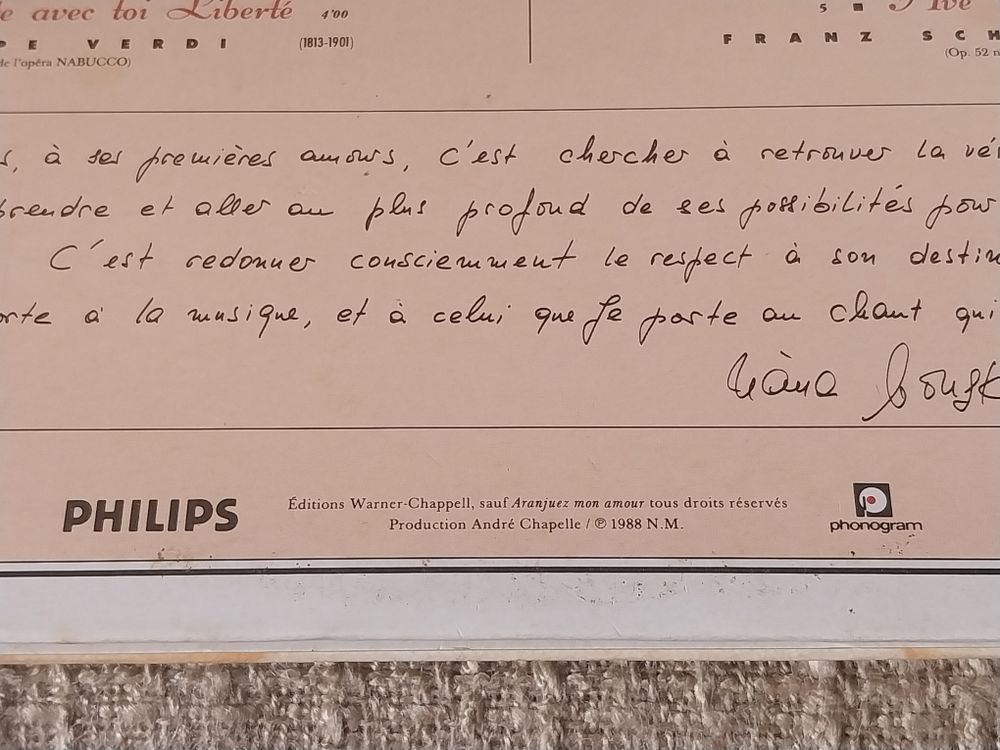 e avec toi Liberté 4'00
5 ■ Ave
PE VERDI (1813-1901)
FRANZ SCH
de l'opéra NABUCCO)
(Op. 52 n
s, à ses premières amours, c'est chercher à retrouver la vér
prendre et aller au plus profond de ses possibilités pour
C'est redonner consciemment le respect à son destin
orte à la musique, et à celui que je porte au chant qui
Nana Mousk
PHILIPS
Éditions Warner-Chappell, sauf Aranjuez mon amour tous droits réservés
Production André Chapelle / ℗ 1988 N.M.
phonogram